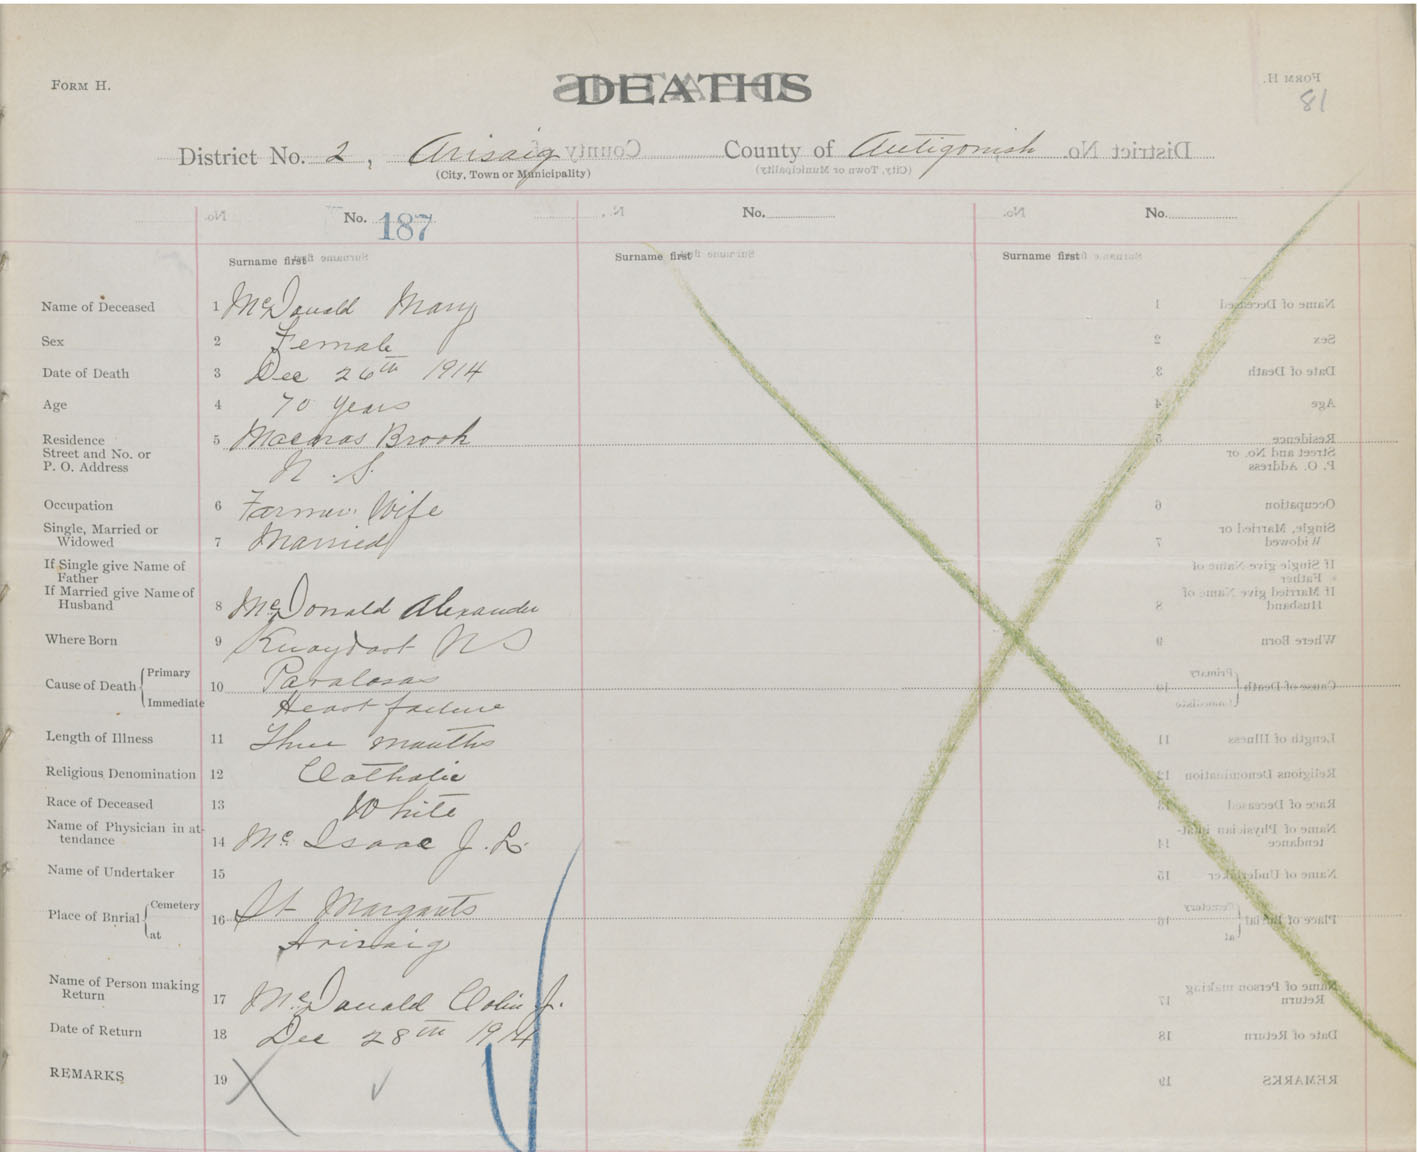 FORM H.
DEATHS
81
District No. 2, Arisaig County of Antigonish
(City, Town or Municipality)
No. 187 No. No.
Surname first Surname first Surname first
Name of Deceased 1 McDonald Mary
Sex 2 Female
Date of Death 3 Dec 26th 1914
Age 4 70 years
Residence 5 Macaras Brook
Street and No. or
P. O. Address N. S.
Occupation 6 Farmer Wife
Single, Married or
Widowed 7 Married
If Single give Name of
Father
If Married give Name of
Husband 8 McDonald Alexander
Where Born 9 Knoydart N S
Cause of Death Primary 10 Paralasas
Immediate Heart failure
Length of Illness 11 Three months
Religious Denomination 12 Catholic
Race of Deceased 13 White
Name of Physician in at-
tendance 14 Mc Isaac J. L.
Name of Undertaker 15
Place of Burial Cemetery 16 St Margarets
at Arisaig
Name of Person making
Return 17 McDonald Colin J.
Date of Return 18 Dec 28th 1914
REMARKS 19